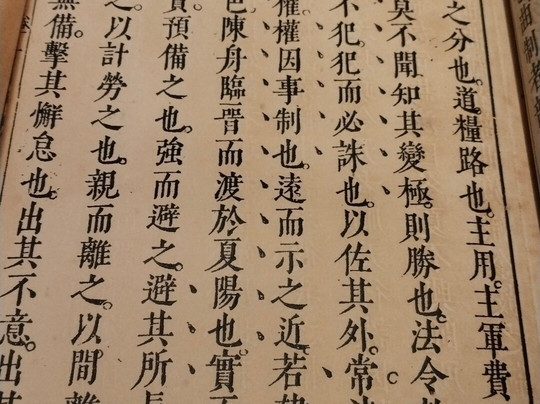 曲制者
之分也。道。糧路也。主用。主軍費
莫不聞知其變極。則勝也。法令
不犯犯而必誅也。以佐其外。常
權權因事制也。遠而示之近。若
陳舟臨晉而渡於夏陽也。實
預備之也。強而避之。避其所
之。以計勞之也。親而離之。以間離
無備擊其懈怠也。出其不意。出其